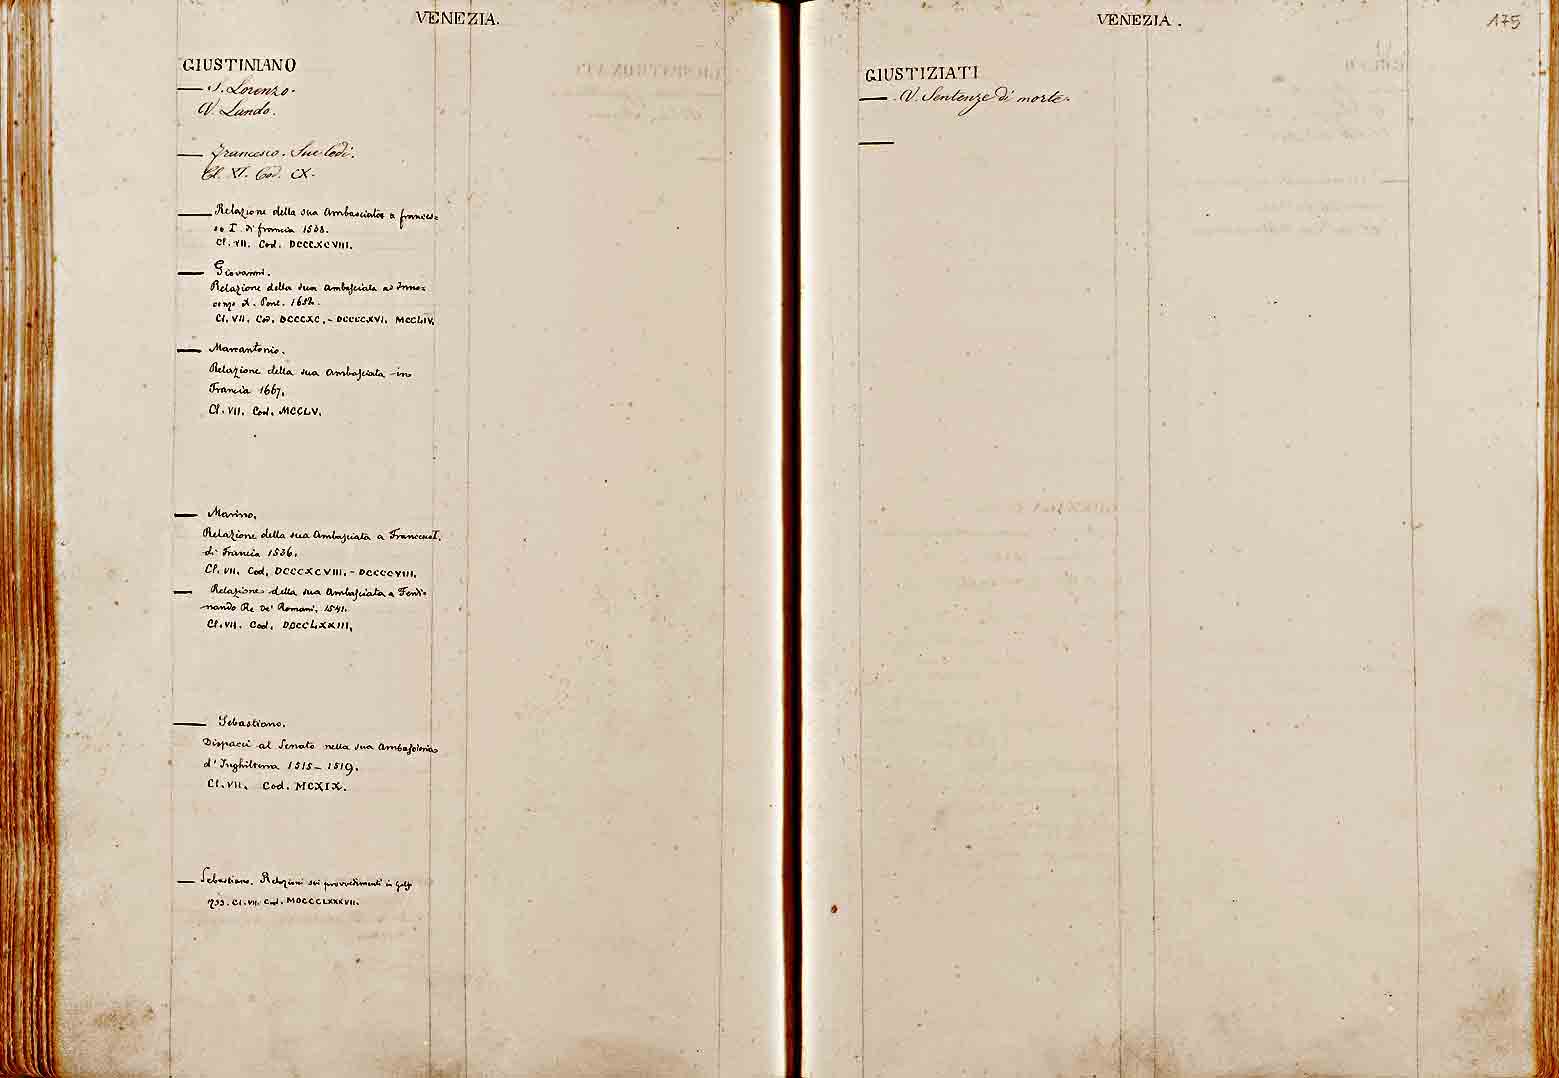 VENEZIA.
GIUSTINIANO
— S. Lorenzo.
V. Lando.
— Francesco. Sue lodi.
Cl. XI. Cod. CX.
— Relazione della sua Ambasciata a frances=
co I. di francia 1538.
Cl. VII. Cod. DCCCXCVIII.
— Giovanni.
Relazione della sua Ambasciata ad Inno=
cenzo X. Pont. 1652.
Cl. VII. Cod. DCCCXC. - DCCCCXVI. MCCLIV.
— Marcantonio.
Relazione della sua Ambasciata in
Francia 1667.
Cl. VII. Cod. MCCLV.
— Marino.
Relazione della sua Ambasciata a Francesco I.
di Francia 1536.
Cl. VII. Cod. DCCCXCVIII. - DCCCCVIII.
— Relazione della sua Ambasciata a Ferdi=
nando Re de' Romani. 1541.
Cl. VII. Cod. DCCCLXXIII.
— Sebastiano.
Dispacci al Senato nella sua
d'Inghilterra 1515 - 1519.
Cl. VII. Cod. MCXIX.
— Sebastiano. Relazioni sui provvedimenti in
Cl. VII. Cod.
VENEZIA.
175
GIUSTIZIATI
— V. Sentenze di morte.
—